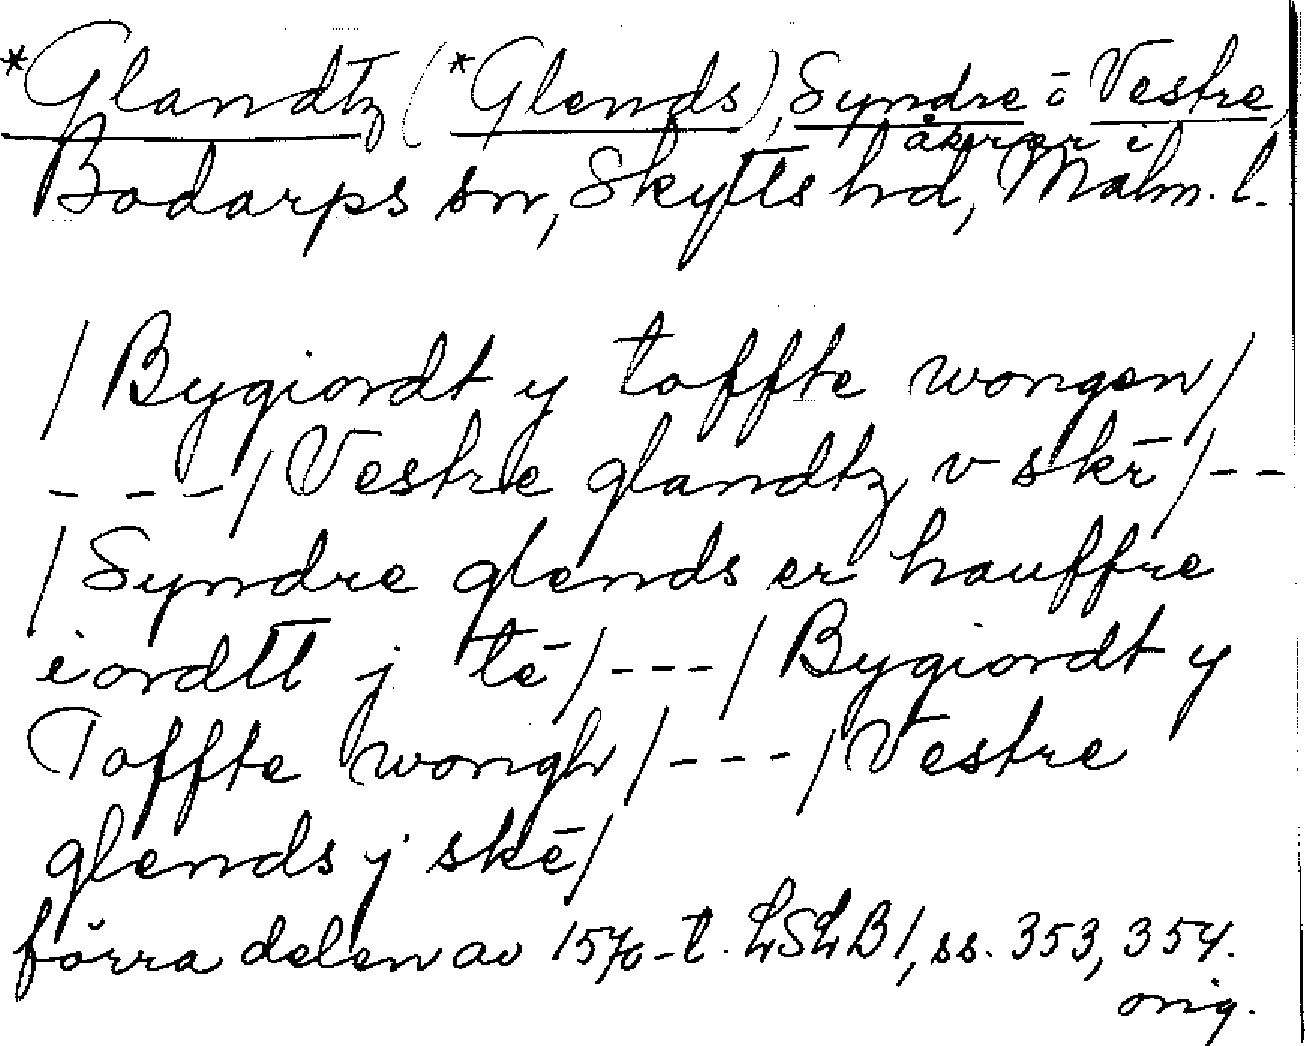 *Glandtz (*Glends), Syndre o Vestre,
åkrar i
Bodarps sn, Skytts hd, Malm. l.
/ Bygiordt y toffte wongen /
- - - / Vestre glandtz v skē / - -
/ Syndre glends er hauffre
iordtt j tē / - - - / Bygiordt y
Toffte wongh / - - - / Vestre
glends j skē /
förra delen av 1570-t. LSLB 1, ss. 353, 354.
orig.